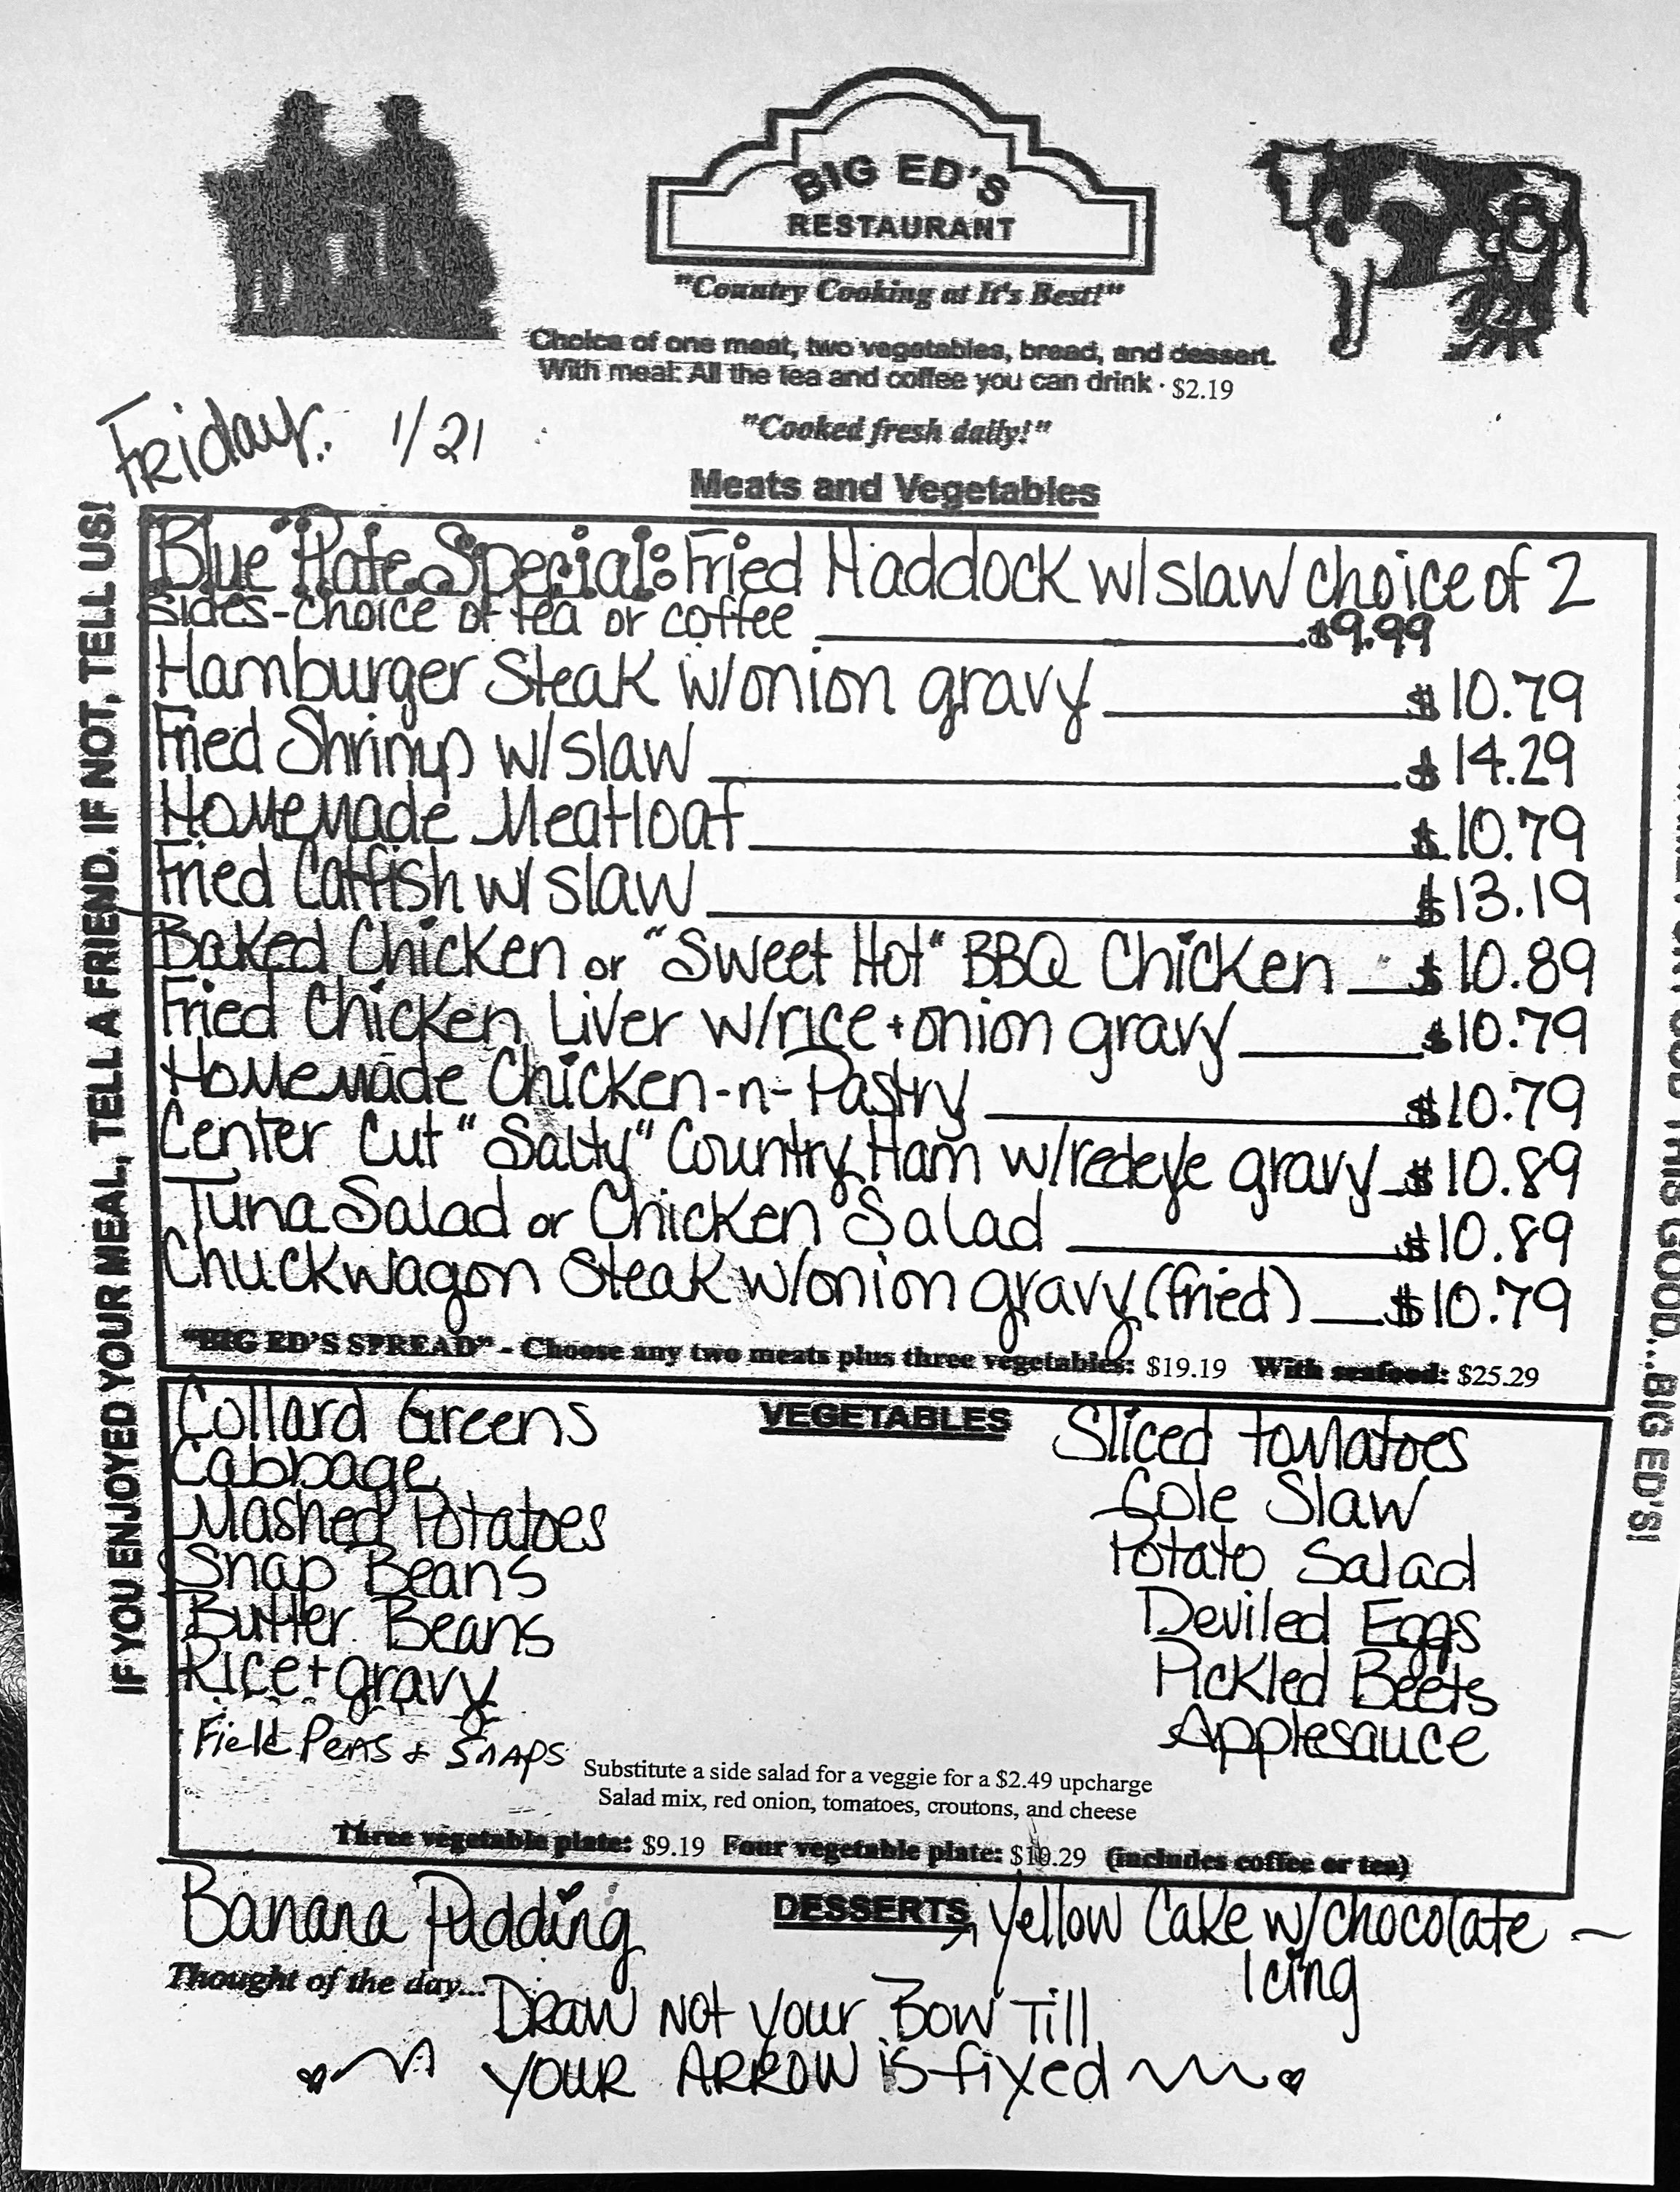 BIG ED'S
RESTAURANT
"Country Cooking at It's Best!"
Choice of one meat, two vegetables, bread, and dessert.
With meal: All the tea and coffee you can drink · $2.19
Friday: 1/21
"Cooked fresh daily!"
Meats and Vegetables
Blue Plate Special: Fried Haddock w/slaw choice of 2
sides-choice of tea or coffee $9.99
Hamburger Steak w/onion gravy $10.79
Fried Shrimp w/slaw $14.29
Homemade Meatloaf $10.79
Fried Catfish w/slaw $13.19
Baked Chicken or "Sweet Hot" BBQ Chicken $10.89
Fried Chicken Liver w/rice + onion gravy $10.79
Homemade Chicken-n-Pastry $10.79
Center Cut "Salty" Country Ham w/redeye gravy $10.89
Tuna Salad or Chicken Salad $10.89
Chuckwagon Steak w/onion gravy (fried) $10.79
"BIG ED'S SPREAD" - Choose any two meats plus three vegetables: $19.19 With seafood: $25.29
VEGETABLES
Collard Greens
Cabbage
Mashed Potatoes
Snap Beans
Butter Beans
Rice + gravy
Field Peas & Snaps
Sliced tomatoes
Cole Slaw
Potato Salad
Deviled Eggs
Pickled Beets
Applesauce
Substitute a side salad for a veggie for a $2.49 upcharge
Salad mix, red onion, tomatoes, croutons, and cheese
Three vegetable plate: $9.19 Four vegetable plate: $10.29 (includes coffee or tea)
DESSERTS
Banana Pudding
Yellow Cake w/chocolate
Icing
Thought of the day...
Draw not your Bow Till
your ARROW is fixed
IF YOU ENJOYED YOUR MEAL, TELL A FRIEND. IF NOT, TELL US!
GOOD THIS GOOD...BIG ED'S!